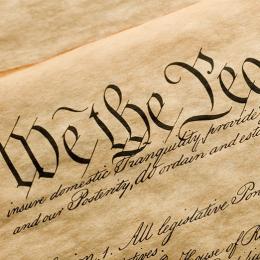 We the Peo
insure domestic Tranquility, provide
and our Posterity, do ordain and est
1. All legislative Pow
House of R